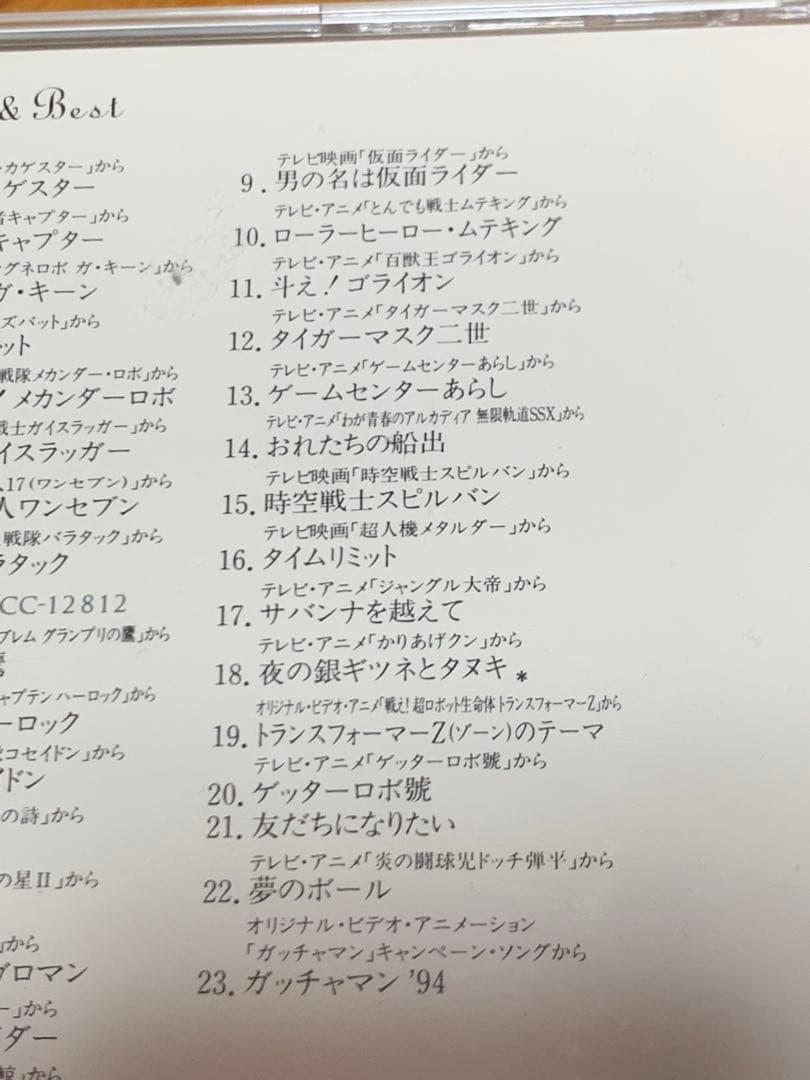 & Best
カゲスター」から
ゲスター
者キャプター」から
キャプター
グネロボ ガ・キーン」から
ガ・キーン
ズバット」から
ット
戦隊メカンダー・ロボ」から
! メカンダーロボ
戦士ガイスラッガー」から
イスラッガー
17(ワンセブン)」から
人ワンセブン
戦隊バラタック」から
ラタック
CC-12812
ブレム グランプリの鷹」から
ャプテンハーロック」から
ーロック
コセイドン」から
ドン
の詩」から
の星II」から
」から
グロマン
ー」から
ダー
鯨」から
テレビ映画「仮面ライダー」から
9. 男の名は仮面ライダー
テレビ・アニメ「とんでも戦士ムテキング」から
10. ローラーヒーロー・ムテキング
テレビ・アニメ「百獣王ゴライオン」から
11. 斗え!ゴライオン
テレビ・アニメ「タイガーマスク二世」から
12. タイガーマスク二世
テレビ・アニメ「ゲームセンターあらし」から
13. ゲームセンターあらし
テレビ・アニメ「わが青春のアルカディア 無限軌道SSX」から
14. おれたちの船出
テレビ映画「時空戦士スピルバン」から
15. 時空戦士スピルバン
テレビ映画「超人機メタルダー」から
16. タイムリミット
テレビ・アニメ「ジャングル大帝」から
17. サバンナを越えて
テレビ・アニメ「かりあげクン」から
18. 夜の銀ギツネとタヌキ *
オリジナル・ビデオ・アニメ「戦え!超ロボット生命体トランスフォーマーZ」から
19. トランスフォーマーZ(ゾーン)のテーマ
テレビ・アニメ「ゲッターロボ號」から
20. ゲッターロボ號
21. 友だちになりたい
テレビ・アニメ「炎の闘球児ドッチ弾平」から
22. 夢のボール
オリジナル・ビデオ・アニメーション
「ガッチャマン」キャンペーン・ソングから
23. ガッチャマン '94